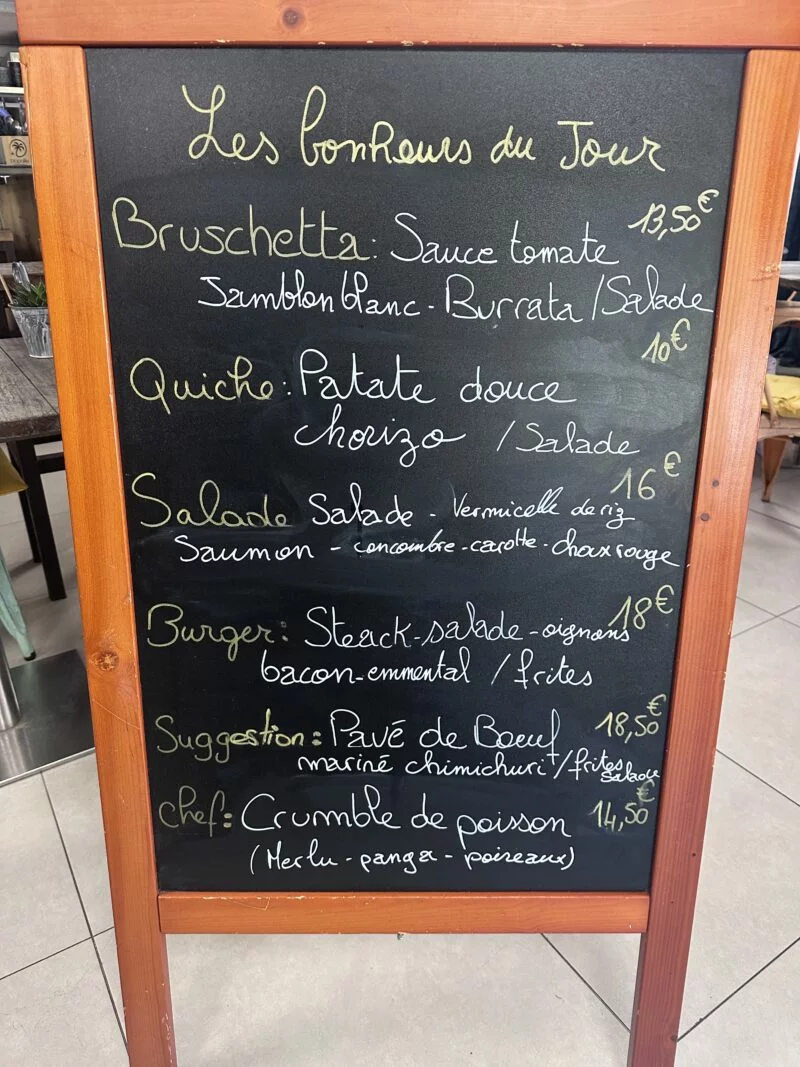 Les bonheurs du Jour
Bruschetta: Sauce tomate 13,50€
Jambon blanc - Burrata / Salade
Quiche: Patate douce 10€
chorizo / Salade
Salade Salade - Vermicelle de riz 16€
Saumon - concombre - carotte - choux rouge
Burger: Steack - salade - oignons 18€
bacon - emmental / frites
Suggestion: Pavé de Bœuf 18,50€
mariné chimichuri / frites salade
Chef: Crumble de poisson 14,50€
(Merlu - panga - poireaux)